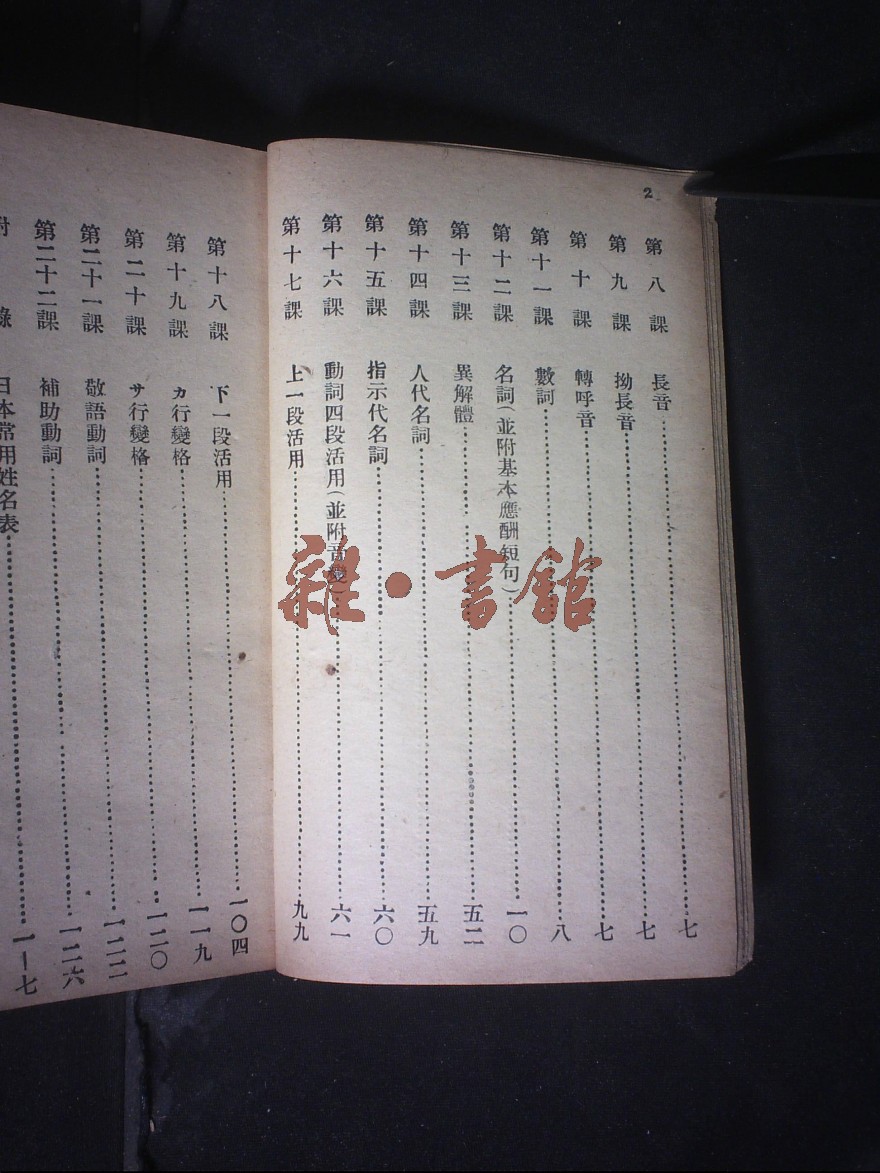 2
第八課 長音……七
第九課 拗長音……七
第十課 轉呼音……七
第十一課 數詞……八
第十二課 名詞(並附基本應酬短句)……一〇
第十三課 異解體……五二
第十四課 人代名詞……五九
第十五課 指示代名詞……六〇
第十六課 動詞四段活用(並附音變)……六一
第十七課 上一段活用……九九
第十八課 下一段活用……一〇四
第十九課 カ行變格……一一九
第二十課 サ行變格……一二〇
第二十一課 敬語動詞……一二二
第二十二課 補助動詞……一二六
附錄 日本常用姓名表……一—七
雜·書館